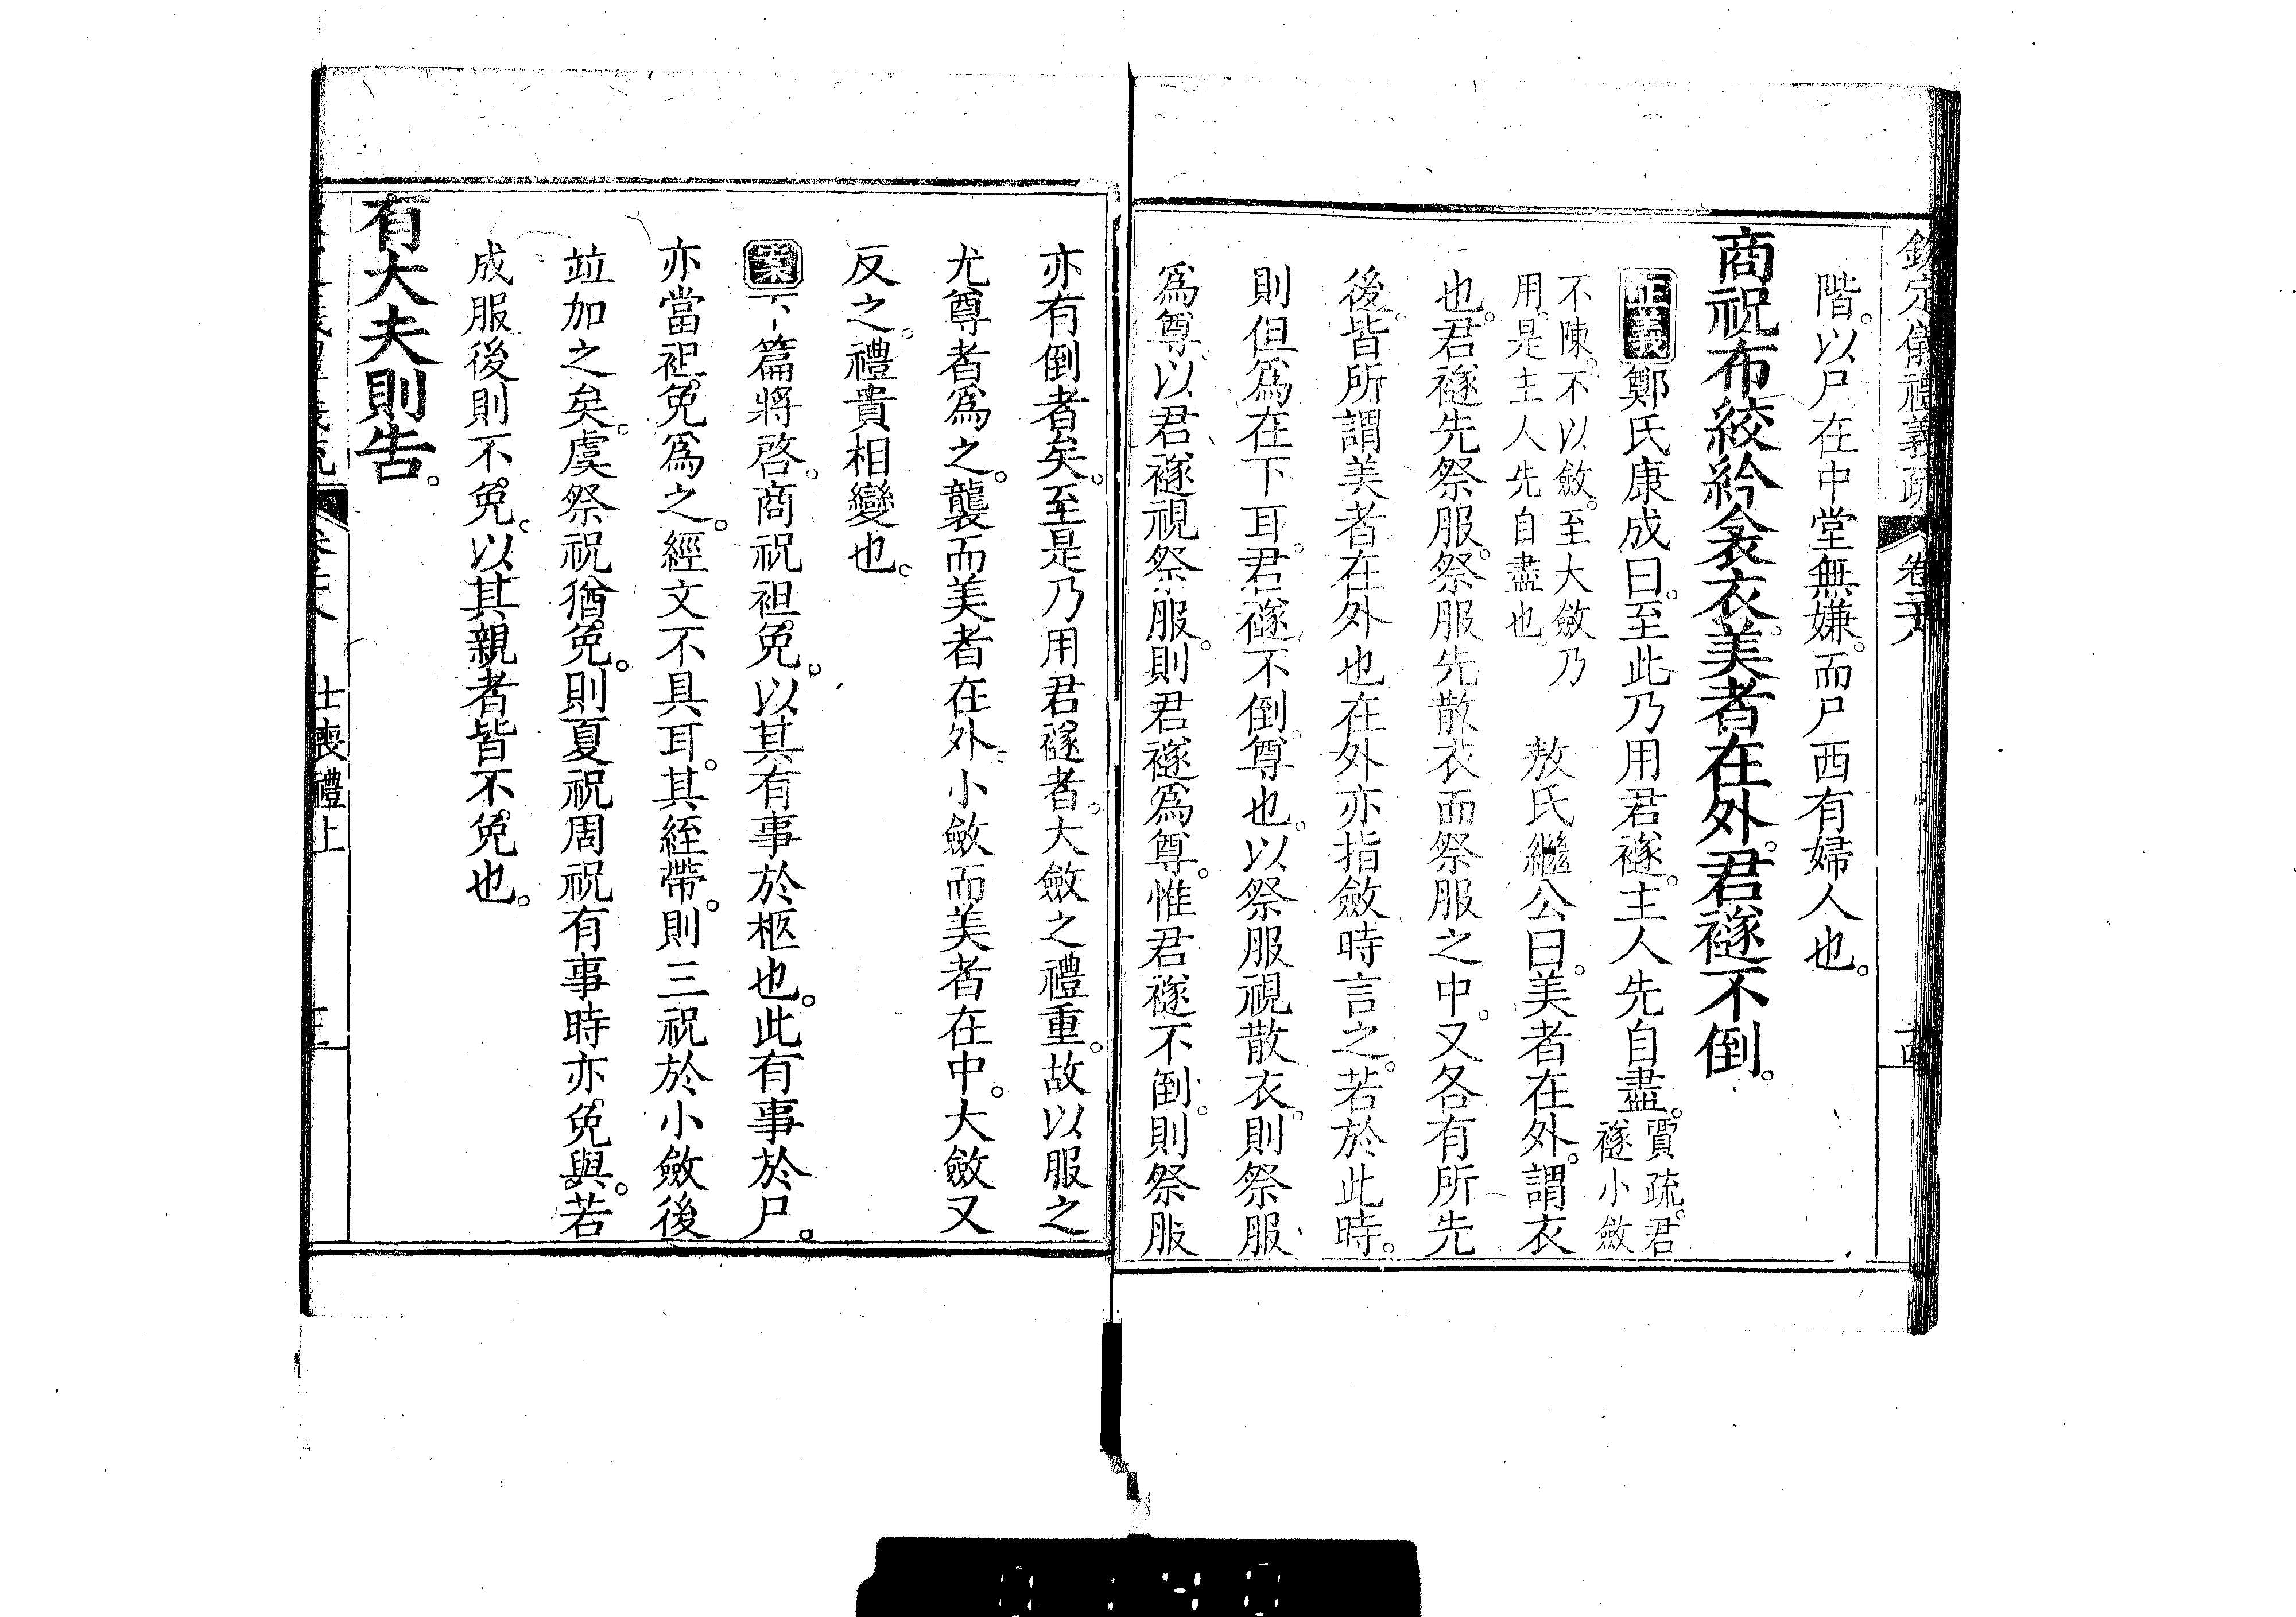 欽定儀禮義疏 卷二十八 十四
階。以尸在中堂無嫌。而尸西有婦人也。
商祝布絞紟衾衣。美者在外。君襚不倒。
正義 鄭氏康成曰。至此乃用君襚。主人先自盡。賈疏。君襚小斂
不陳。不以斂。至大斂乃用。是主人先自盡也。 敖氏繼公曰。美者在外。謂衣
也。君襚先祭服。祭服先散衣而祭服之中。又各有所先
後。皆所謂美者在外也在外亦指斂時言之。若於此時。
則但爲在下耳。君襚不倒。尊也。以祭服視散衣。則祭服
爲尊。以君襚視祭服。則君襚爲尊。惟君襚不倒。則祭服
亦有倒者矣。至是乃用君襚者。大斂之禮重。故以服之
尤尊者爲之。襲而美者在外。小斂而美者在中。大斂又
反之。禮貴相變也。
案 下篇將啓。商祝袒免。以其有事於柩也。此有事於尸。
亦當袒免爲之。經文不具耳。其絰帶。則三祝於小斂後
竝加之矣。虞祭祝猶免。則夏祝周祝有事時亦免與。若
成服後則不免。以其親者皆不免也。
有大夫則告。
士喪禮上
0140